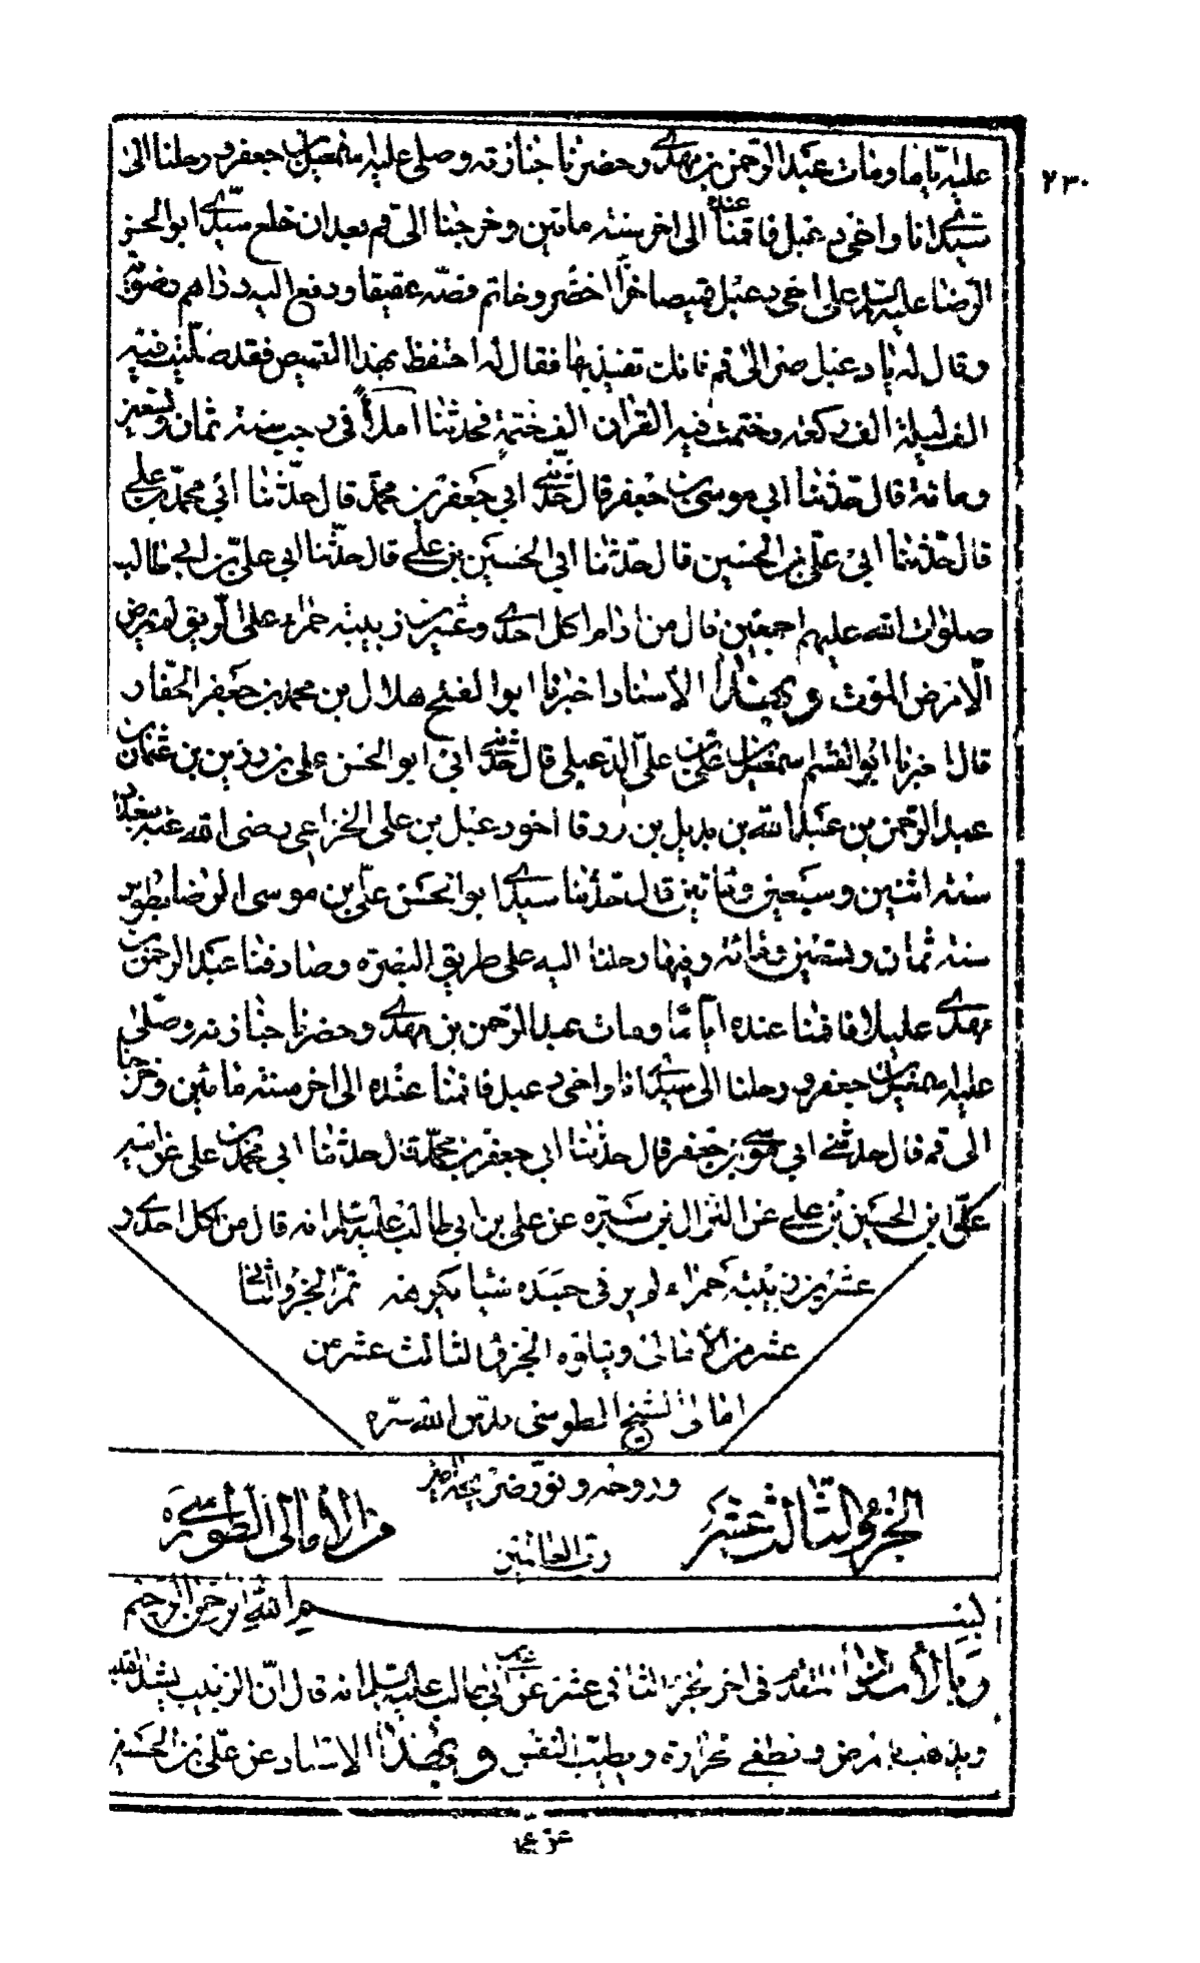 ٢٣٠
عليه اياما ومات عبد الرحمن بن مهدى وحضرنا جنازته وصلى عليه اسمعيل بن جعفر ورحلنا الى
سيدى انا واخى دعبل فاقمنا عنده الى اخر سنة مأتين وخرجنا الى قم بعد ان خلع سيدى ابو الحسن
الرضا عليه السلام على اخى دعبل قميصا خزا اخضر وخاتم فصه عقيقا ودفع اليه دراهم رضوية
وقال له يا دعبل صر الى قم فانك تفيد بها فقال له احتفظ بهذا القميص فقد صليت فيه
الف ليلة الف ركعة وختمت فيه القران الف ختمة فحدثنا املاء فى رجب سنة ثمان وتسعين
ومائة قال حدثنا ابى موسى بن جعفر قال حدثنى ابى جعفر بن محمد قال حدثنا ابى محمد بن على
قال حدثنا ابى على بن الحسين قال حدثنا ابى الحسين بن على قال حدثنا ابى على بن ابى طالب
صلوات الله عليهم اجمعين قال من ادام اكل احدى وعشرين زبيبة حمراء على الريق لم يمرض
الا مرض الموت وبهذا الاسناد اخبرنا ابو الفتح هلال بن محمد بن جعفر الحفار
قال اخبرنا ابو القسم اسمعيل بن على بن على الدعبلى قال حدثنى ابى ابو الحسن على بن رزين بن عثمان بن
عبد الرحمن بن عبد الله بن بديل بن ورقا اخو دعبل بن على الخزاعى رضى الله عنه ببغداد
سنة اثنين وسبعين ومأتين قال حدثنا سيدى ابو الحسن على بن موسى الرضا بطوس
سنة ثمان وتسعين ومائة وفيها رحلنا اليه على طريق البصرة وصادفنا عبد الرحمن بن
مهدى عليلا فاقمنا عنده اياما ومات عبد الرحمن بن مهدى وحضرنا جنازته وصلى
عليه اسمعيل بن جعفر ورحلنا الى سيدى انا واخى دعبل فاقمنا عنده الى اخر سنة مأتين وخرجنا
الى قم قال حدثنى ابى موسى بن جعفر قال حدثنا ابى جعفر بن محمد قال حدثنا ابى محمد بن على عن ابيه
على ابن الحسين بن على عن النزال بن سبرة عن على بن ابى طالب عليه السلام انه قال من اكل احدى و
عشرين زبيبة حمراء لم ير فى جسده شيئا يكرهه تم الجزء الثانى
عشر من الامالى ويتلوه الجزء الثالث عشر من
امالى الشيخ الطوسى قدس الله سره
وروحه ونور ضريحه امين
رب العالمين
الجزء الثالث عشر من الامالى الطوسى ره
بسم الله الرحمن الرحيم
وبالاسناد المتقدم فى اخر الجزء الثانى عشر عن على بن ابى طالب عليه السلام انه قال ان الزبيب يشد القلب
ويذهب بالمرض ويطفى الحرارة ويطيب النفس وبهذا الاسناد عن على بن الحسين